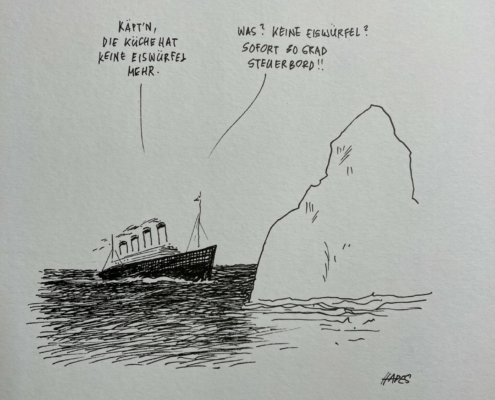 KÄPT'N,
DIE KÜCHE HAT
KEINE EISWÜRFEL
MEHR.
WAS? KEINE EISWÜRFEL?
SOFORT 20 GRAD
STEUERBORD!!
HAPES